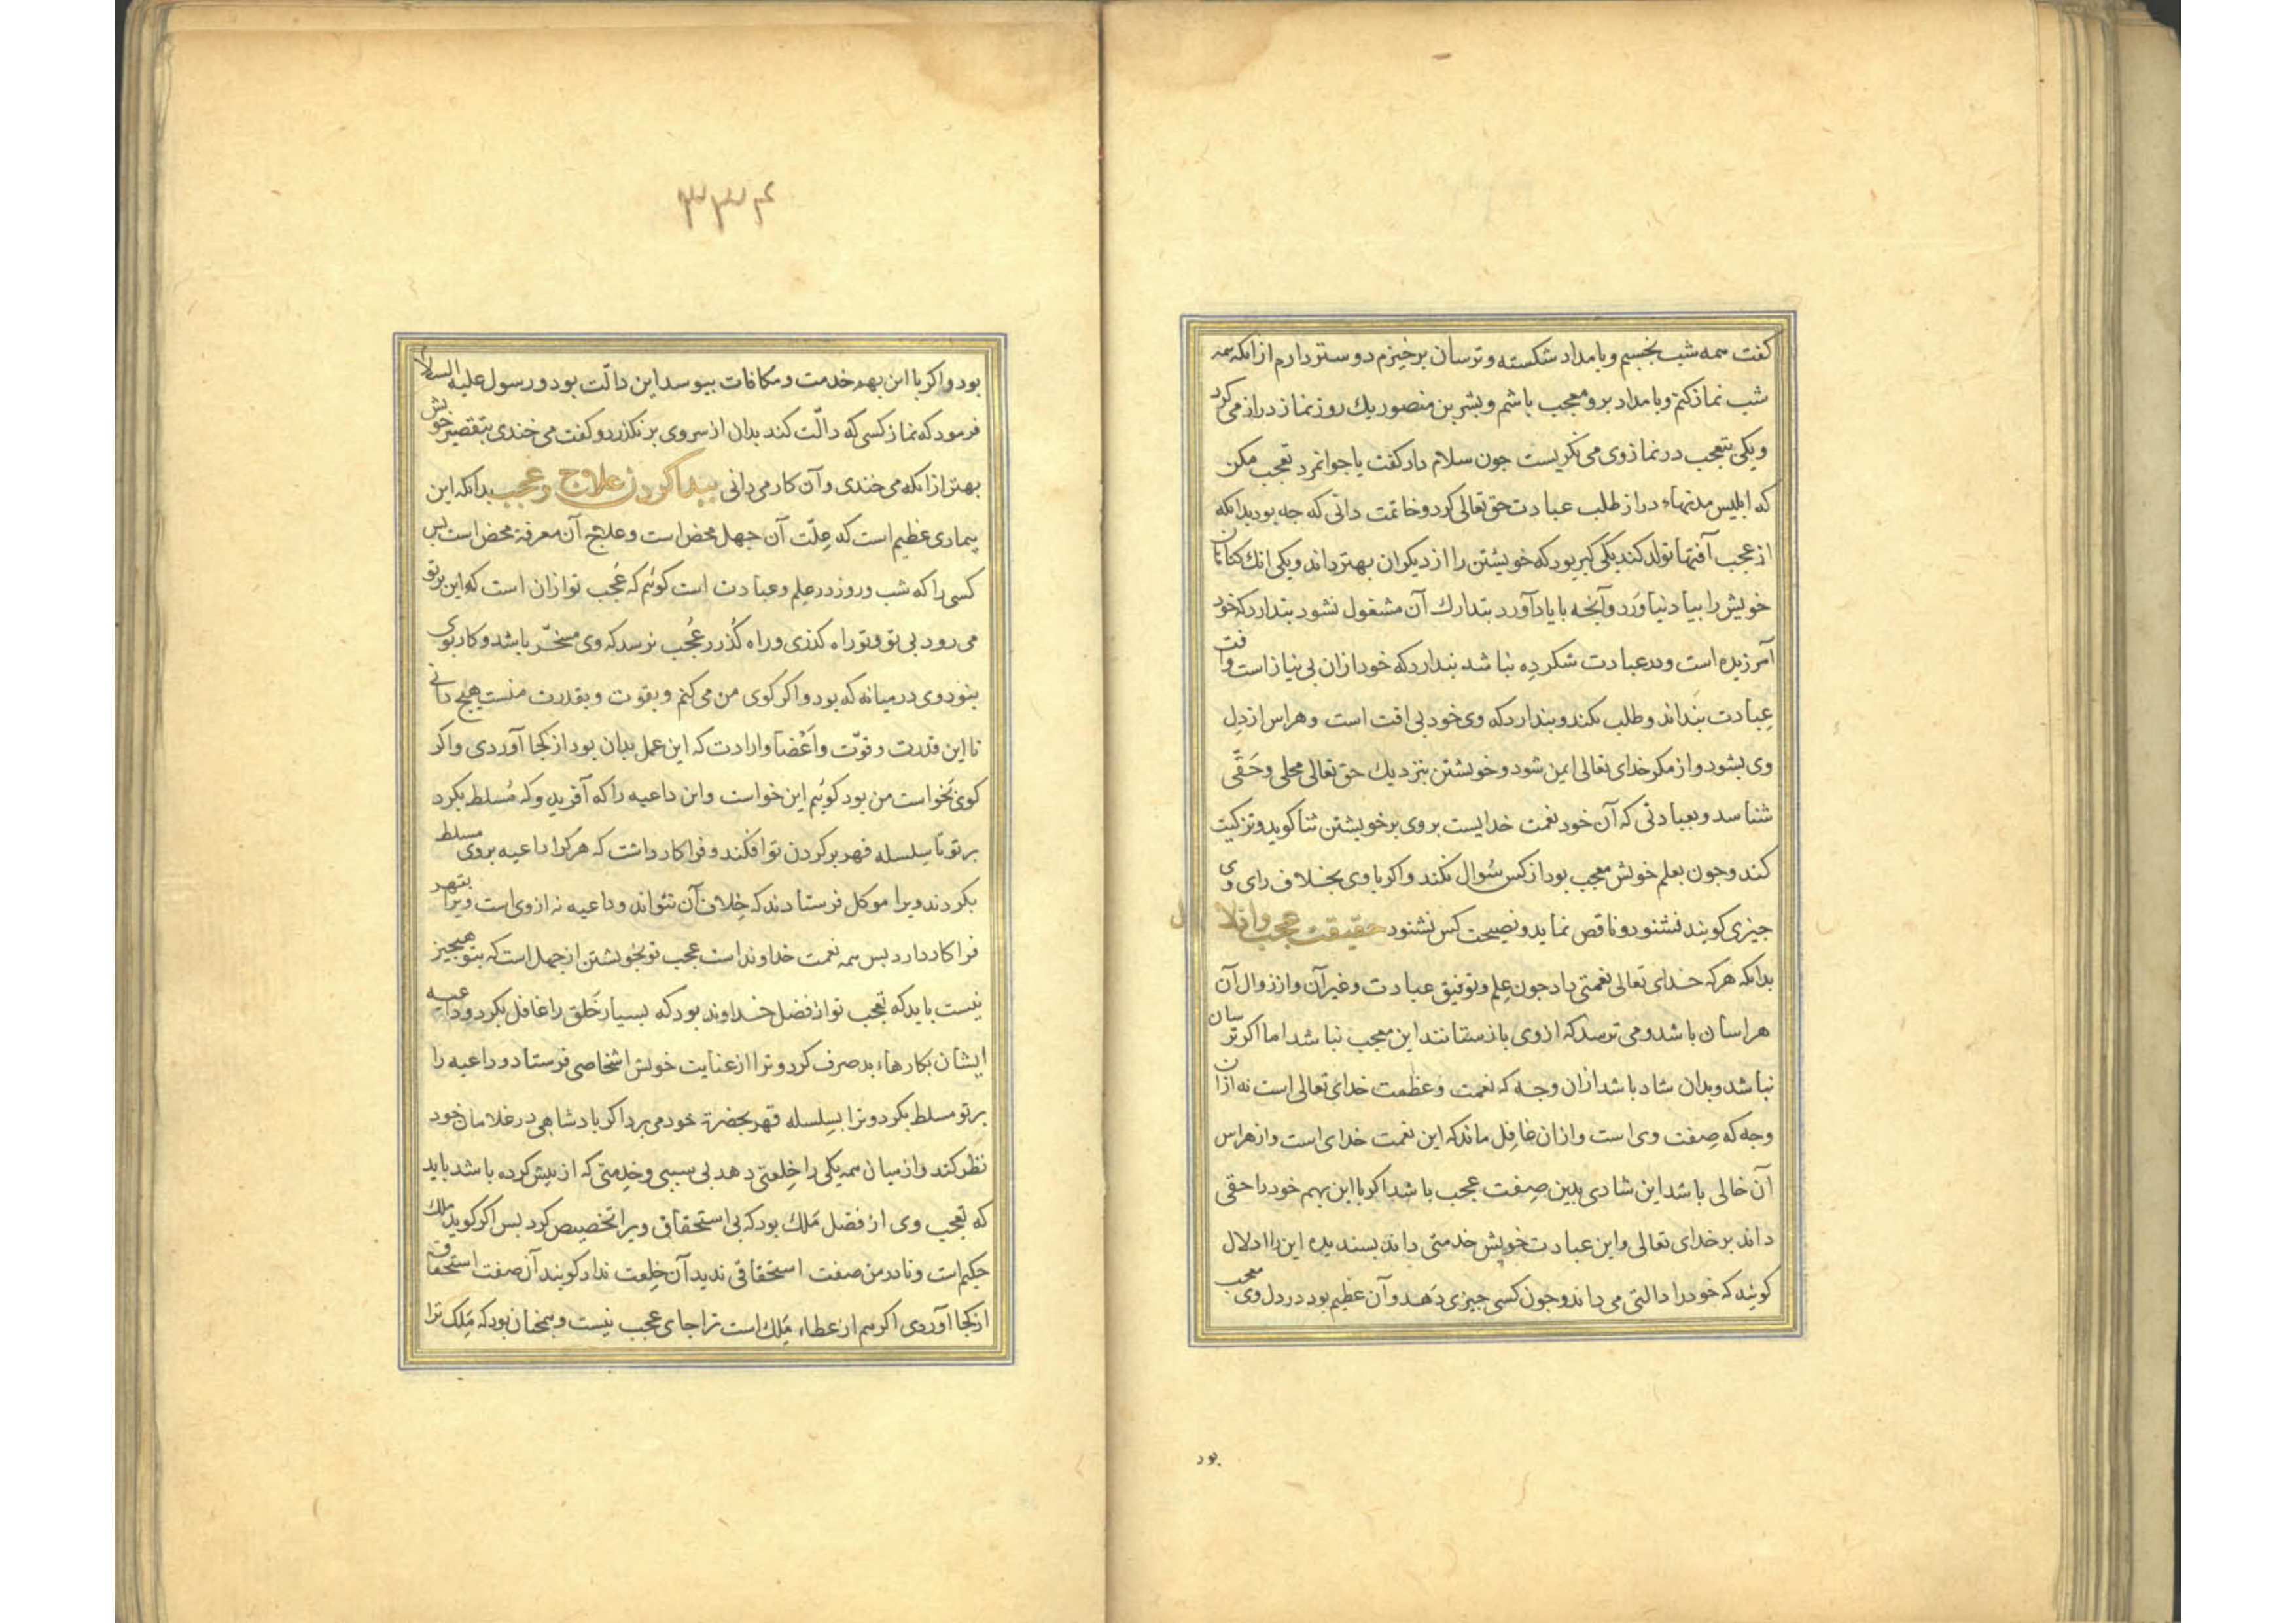 كفت همه شب بخسبم و بامداد شكسته و ترسان برخيزم دوستر دارم از انكه همه
شب نماز كنم و بامداد برو معجب باشم و بشر بن منصور يك روز نماز دراز مى كرد
و يكى بتعجب در نماز وى مى نكريست جون سلام داد كفت يا جوانمرد تعجب مكن
كه ابليس مدتهاء دراز طلب عبادت حق تعالى كرد و خاتمت دانى كه جه بود بدانكه
از عجب آفتها تولد كند يكى كبر بود كه خويشتن را از ديكران بهتر داند و يكى انك كناهان
خويش را بياد نياورد و آنجه با ياد آورد بتدارك آن مشغول نشود بندارد كه خود
آمرزيده است و در عبادت شكرده نباشد بندارد كه خود ازان بى نياز است و آفت
عبادت بنداند و طلب نكند و بندارد كه وى خود بى افت است و هراس از دل
وى بشود و از مكر خداى تعالى ايمن شود و خويشتن بنزديك حق تعالى محلى و حقى
شناسد و بعبادتى كه آن خود نعمت خدايست بر وى بر خويشتن ثنا كويد و تزكيت
كند و جون بعلم خويش معجب بود از كس سوال نكند و اكر با وى بخلاف راى وى
جيزى كويند نشنود و ناقص نمايد و نصيحت كس نشنود حقيقت عجب و ادلال
بدانكه هركه خداى تعالى نعمتى داد جون علم و توفيق عبادت و غير آن و از زوال آن
هراسان باشد و مى ترسد كه از وى باز ستانند اين معجب نباشد اما اكر ترسان
نباشد و بدان شاد باشد ازان وجه كه نعمت و عظمت خداى تعالى است نه ازان
وجه كه صفت وى است و ازان غافل ماند كه اين نعمت خداى است و از هراس
آن خالى باشد اين شادى بدين صفت عجب باشد اكر با اين بهم خود را حقى
داند بر خداى تعالى و اين عبادت خويش خدمتى داند بسنديده اين را ادلال
كويند كه خود را دالتى مى داند و جون كسى جيزى دهد و آن عظيم بود در دل وى معجب
بود
٣٣۴
بود و اكر با اين بهم خدمت و مكافات بيوسد اين دالت بود و رسول عليه السلام
فرمود كه نماز كسى كه دالت كند بدان از سر وى بر نكذرد و كفت مى خندى بتقصير خويش
بهتر از انكه مى خندى و آن كار مى دانى بيدا كردن علاج و عجب بدانكه اين
بيمارى عظيم است كه علت آن جهل محض است و علاج آن معرفة محض است بس
كسى را كه شب و روز در علم و عبادت است كوئيم كه عجب تو ازان است كه اين بر تو
مى رود بى تو و تو راه كذرى و راه كذر را عجب نرسد كه وى مسخر باشد و كار بوى
بنود وى در ميانه كه بود و اكر كوى من مى كنم و بقوت و بقدرت منست هيج دانى
تا اين قدرت و قوت و اعضا و ارادت كه اين عمل بدان بود از كجا آوردى و اكر
كوئى بخواست من بود كوئيم اين خواست و اين داعيه را كه آفريد و كه مسلط بكرد
بر تو تا سلسله قهر بر كردن تو افكند و فرا كار داشت كه هر كرا داعيه بر وى مسلط
بكردند ويرا موكل فرستادند كه خلاف آن نتواند و داعيه نه از وى است ويرا بقهر
فرا كار دارد بس همه نعمت خداوند است عجب تو بخويشتن از جهل است كه بتو هيجيز
نيست بايد كه تعجب تو از فضل خداوند بود كه بسيار خلق را غافل بكرد و داعيه
ايشان بكارهاء بد صرف كرد و ترا از عنايت خويش اشخاصى فرستاد و داعيه را
بر تو مسلط بكرد و ترا بسلسله قهر بحضرة خود مى برد اكر بادشاهى در غلامان خود
نظر كند و از ميان همه يكى را خلعتى دهد بى سببى و خدمتى كه از بيش كرده باشد بايد
كه تعجب وى از فضل ملك بود كه بى استحقاقى ويرا تخصيص كرد بس اكر كويد ملك
حكيم است و تا در من صفت استحقاقى نديد آن خلعت نداد كويند آن صفت استحقاق
از كجا آوردى اكر هم از عطاء ملك است ترا جاى عجب نيست و همجنان بود كه ملك ترا